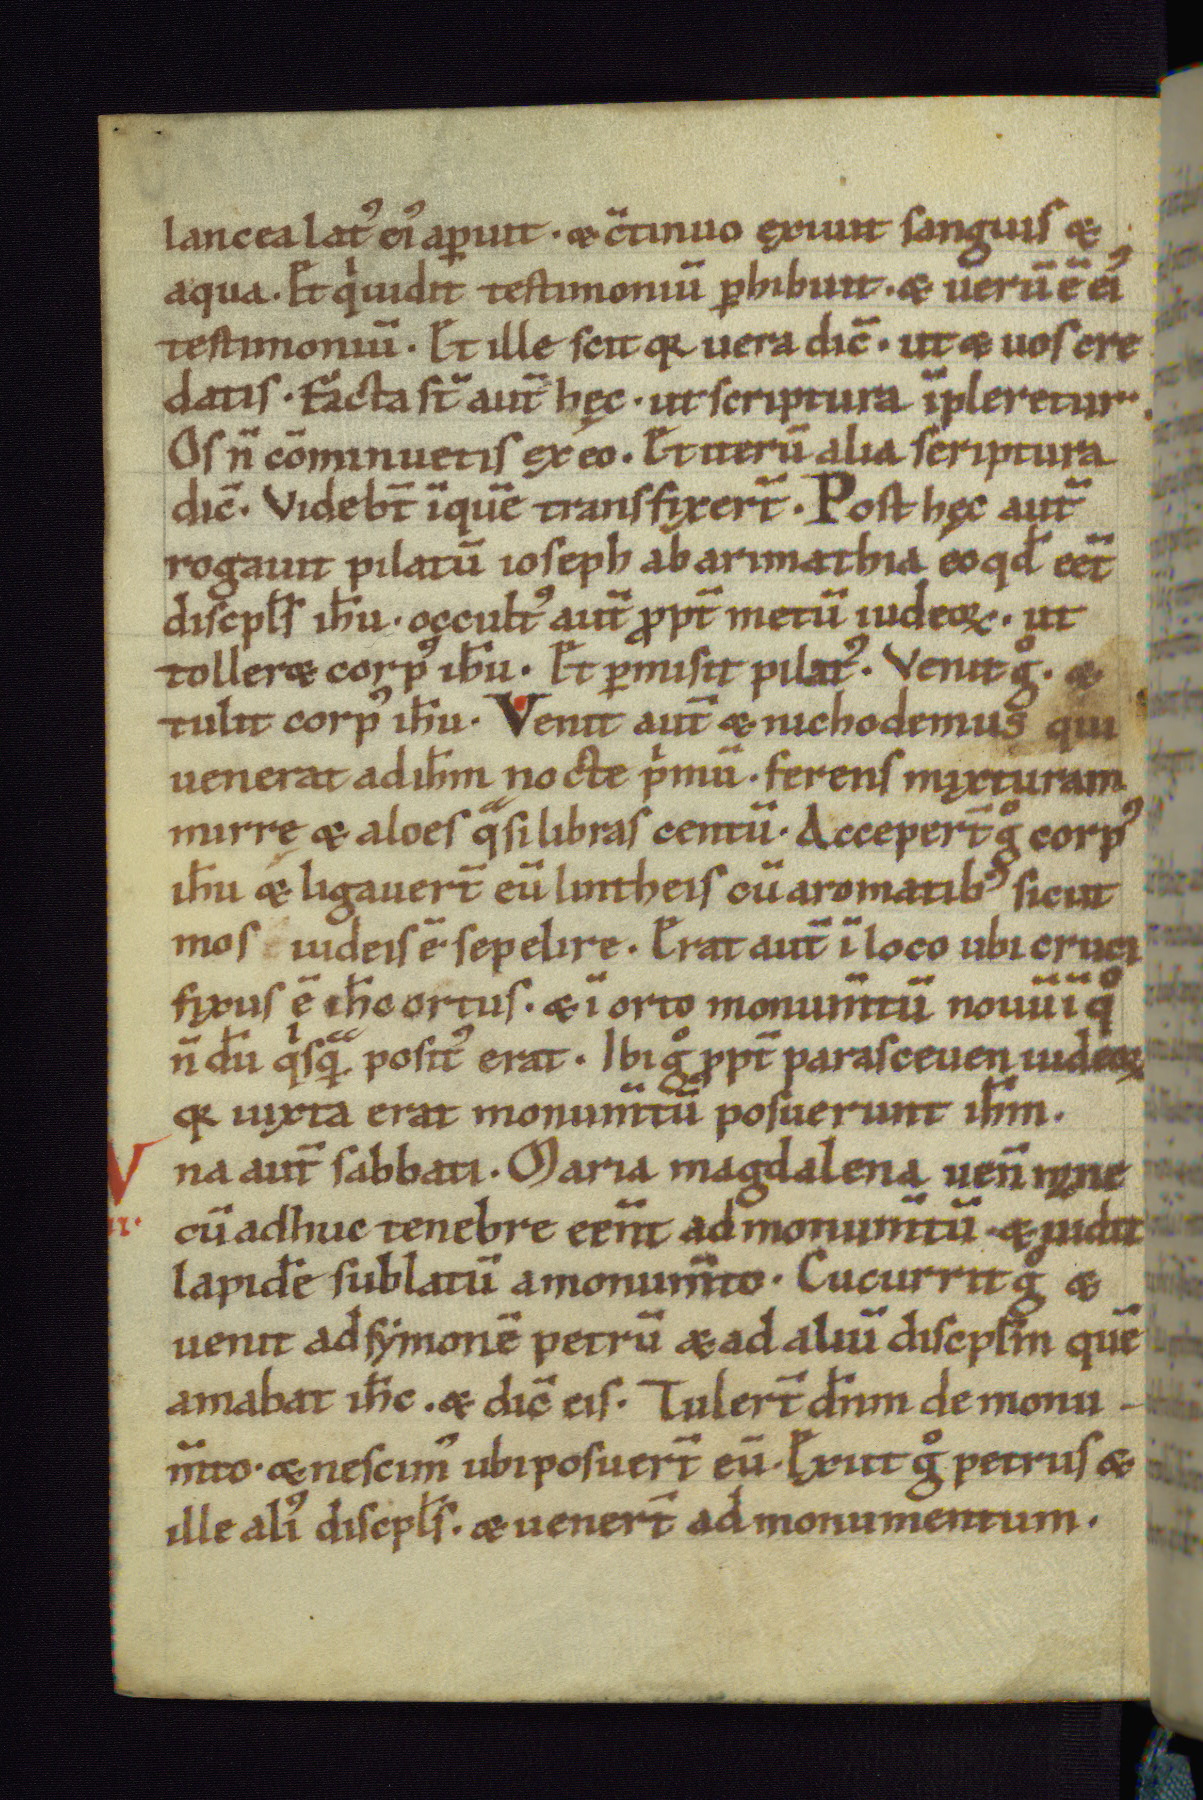 lancea latꝰ eiꝰ aꝑuit · & c̄tinuo exiuit sanguis &
aqua · Et qͥ uidit testimoniū ꝑhibuit · & uerū ē eiꝰ
testimoniū · Et ille scit qꝛ uera dic̄ · ut & uos cre
datis · Facta st̄ aut̄ hęc · ut scriptura īpleretur ·
Os n̄ cōminuetis ex eo · Et iterū alia scriptura
dic̄ · Videbt̄ ī quē transfixert̄ · Post hęc aut̄
rogauit pilatū ioseph ab arimathia eo qd̄ eēt
discpl̄s ih̄u · occultꝰ aut̄ ꝓpt̄ metū iudeoꝝ · ut
toller& corpꝰ ih̄u · Et ꝑmisit pilatꝰ · Venit gͦ · &
tulit corpꝰ ih̄u · Venit aut̄ & nichodemus qui
uenerat ad ih̄m nocte pͥmū · ferens mixturam
mirre & aloes qͣsi libras centū · Accepert̄ gͦ corpꝰ
ih̄u & ligauert̄ eū lintheis cū aromatibꝰ sicut
mos iudeis ē sepelire · Erat aut̄ ī loco ubi cruci
fixus ē ih̄c ortus · & ī orto monum̄tū nouū ī qͦ
n̄du qͥsqͣ positꝰ erat · Ibi gͦ ꝓpt̄ parasceuen iudeoꝝ
qꝛ iuxta erat monum̄tū posuerunt ih̄m ·
Vna aut̄ sabbati · Maria magdalena uen̄ mane
cū adhuc tenebre eēnt ad monum̄tū · & uidit
lapidē sublatū a monum̄to · Cucurrit gͦ &
uenit ad symonē petrū & ad aliū discpl̄m quē
amabat ih̄c · & dic̄ eis · Tulert̄ dn̄m de monu-
m̄to · & nescimꝰ ubi posuert̄ eū · Exiit gͦ petrus &
ille aliꝰ discpl̄s · & uenert̄ ad monumentum ·